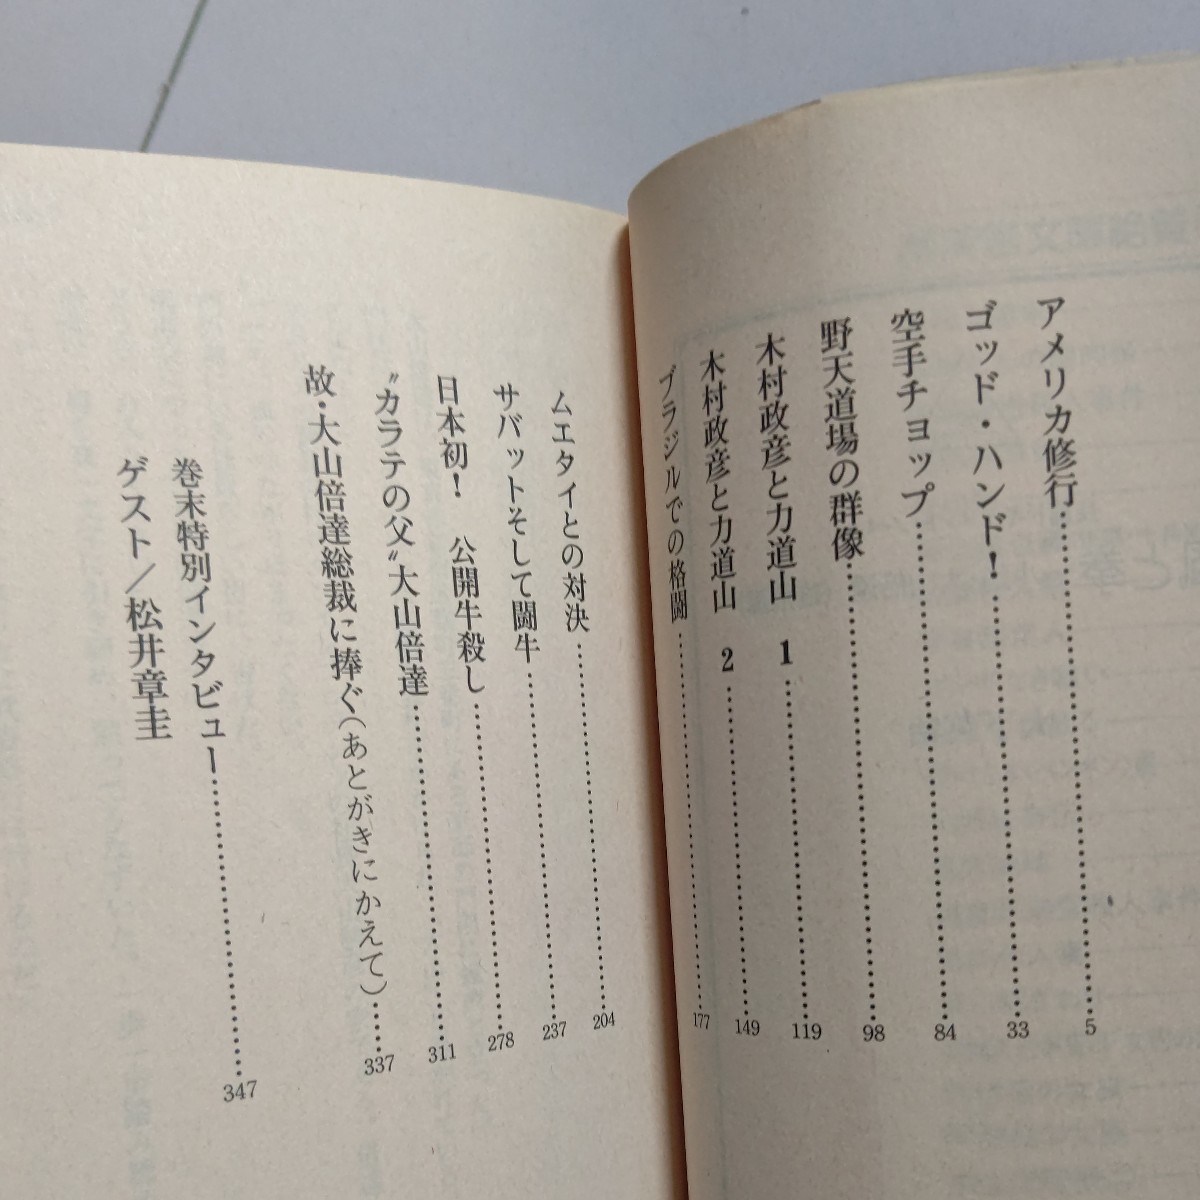 アメリカ修行……………………5
ゴッド・ハンド！……………………33
空手チョップ……………………84
野天道場の群像……………………98
木村政彦と力道山　1……………………119
木村政彦と力道山　2……………………149
ブラジルでの格闘……………………177
ムエタイとの対決……………………204
サバットそして闘牛……………………237
日本初！　公開牛殺し……………………278
〝カラテの父〟大山倍達……………………311
故・大山倍達総裁に捧ぐ（あとがきにかえて）……337
巻末特別インタビュー……………………347
ゲスト／松井章圭